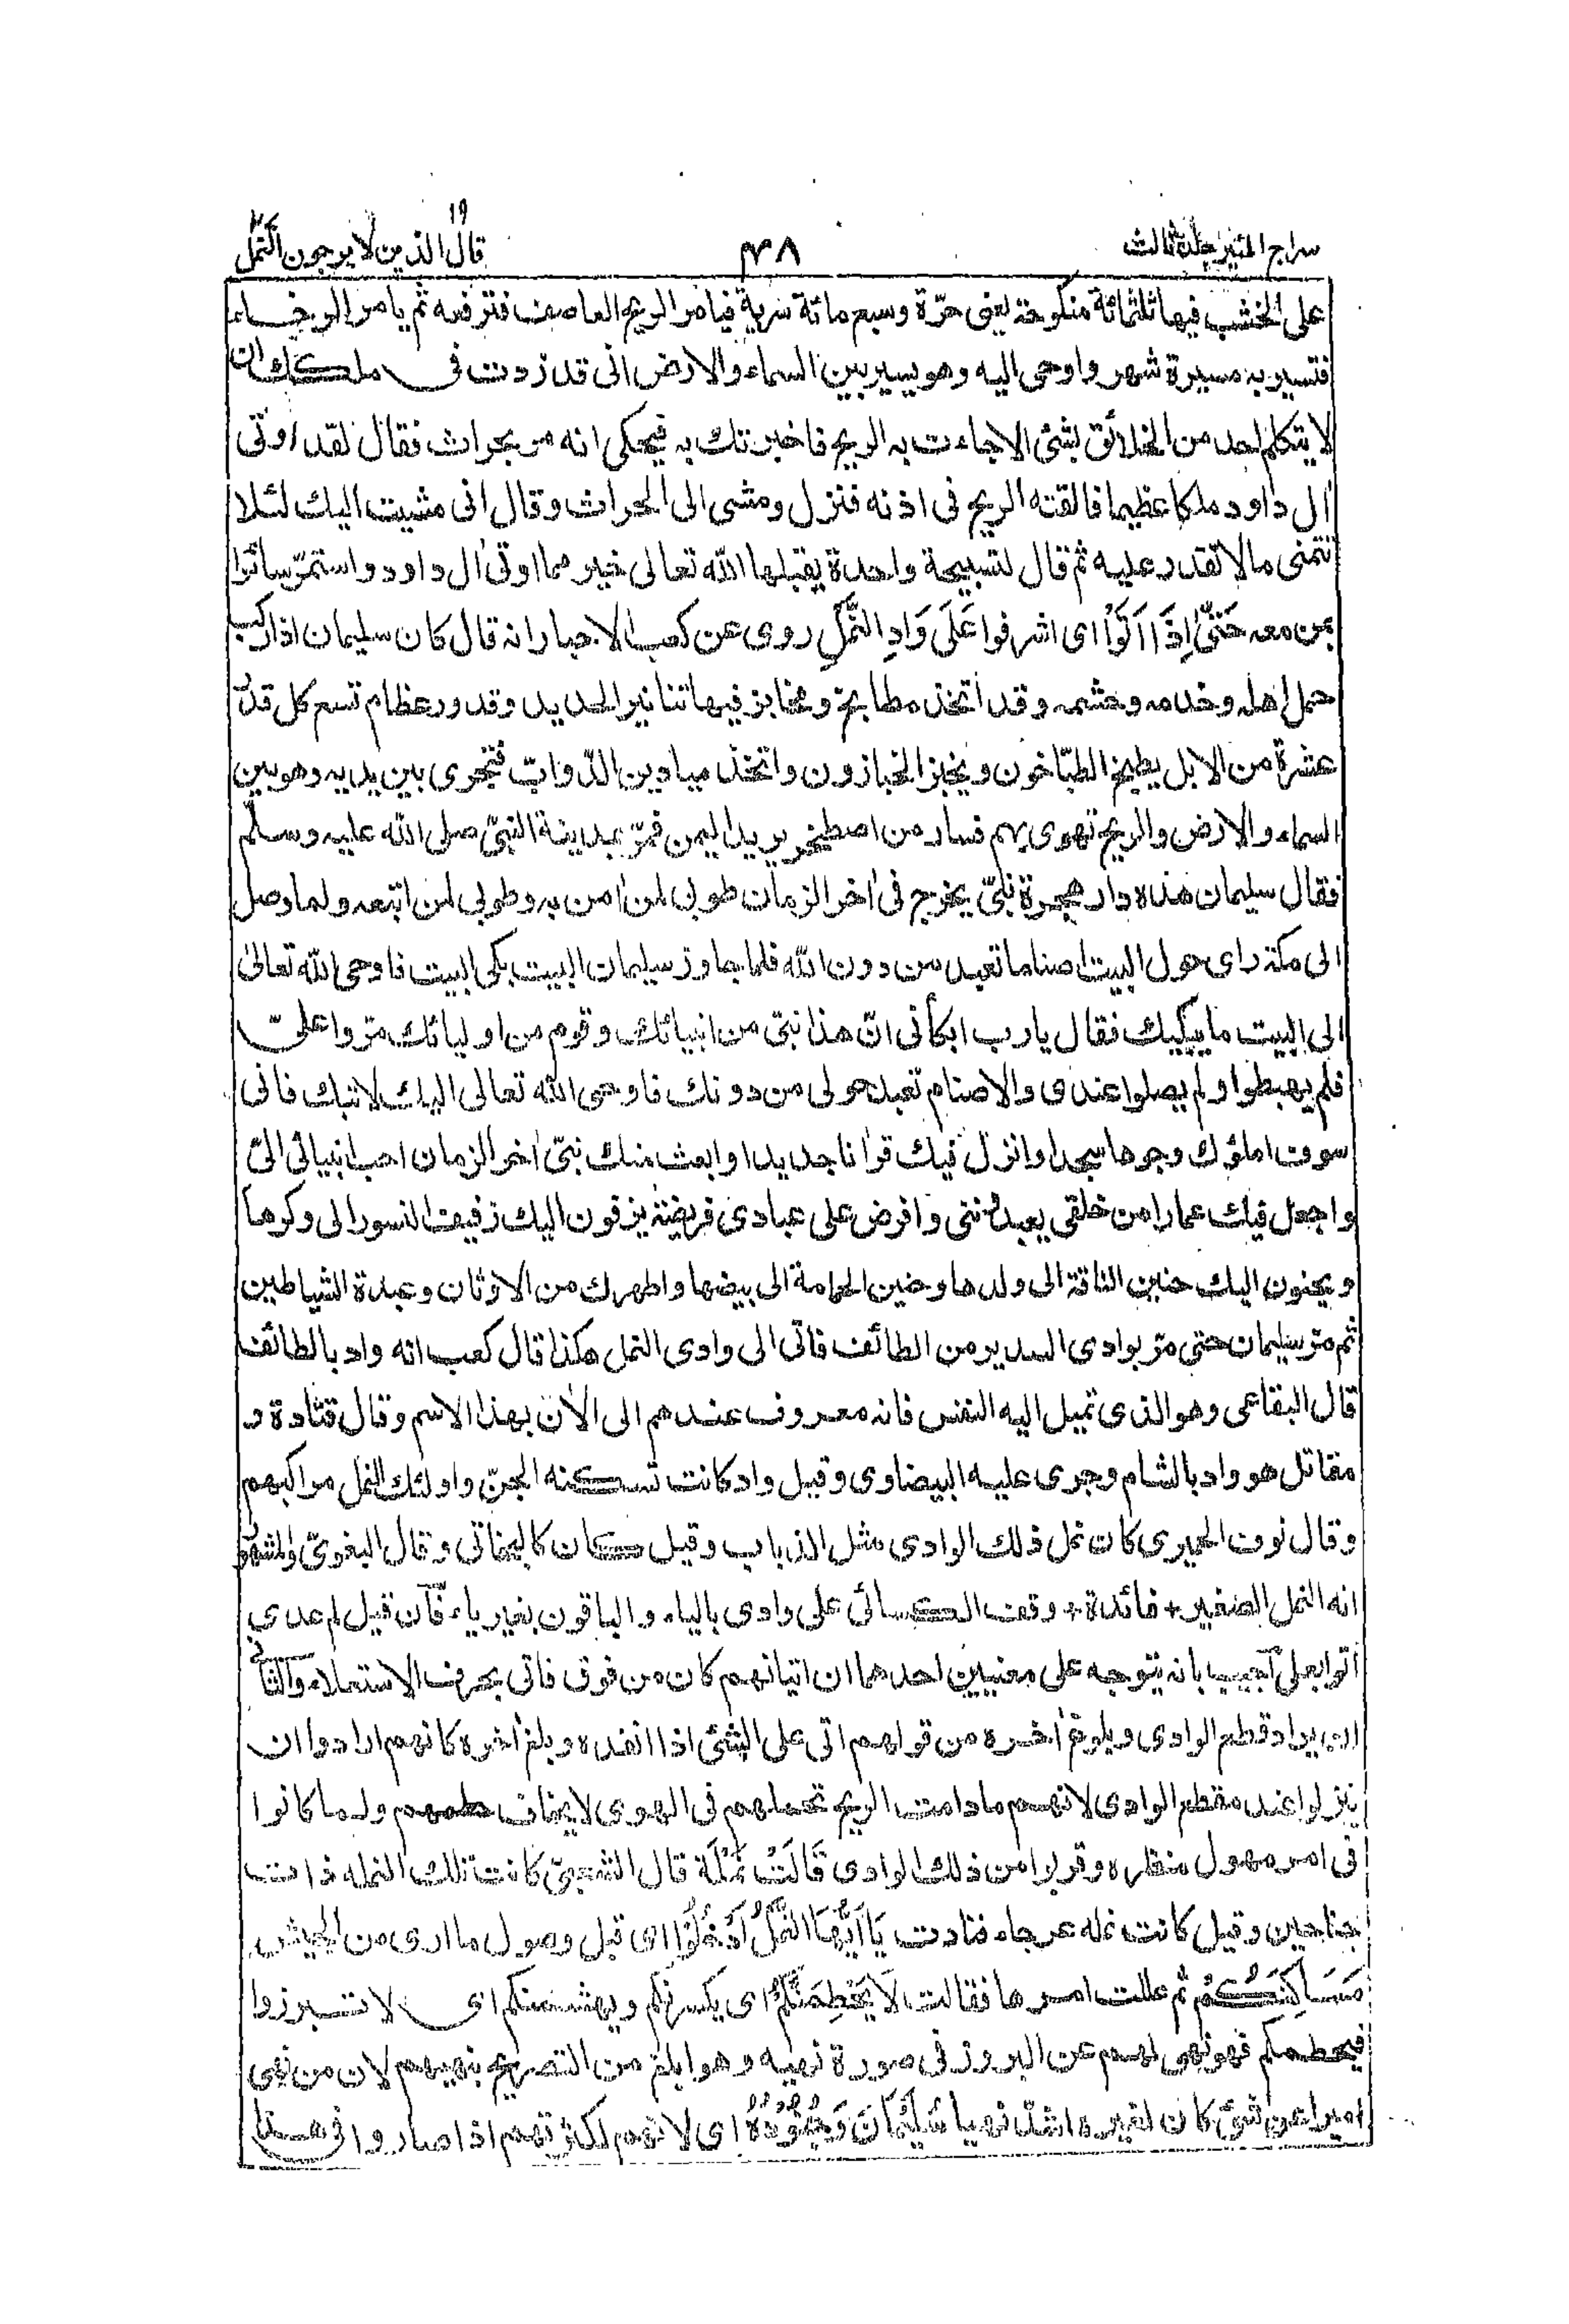 سراج المنير جلد ثالث
٣٨
قال الذين لا يرجون ١٩ النمل
على الخشب فيها ثلثمائة منكوحة يعنى حرّة وسبع مائة سرية فيامر الريح العاصف فترفعه ثم يامر الرخاء
فتسير به مسيرة شهر واوحى اليه وهو يسير بين السماء والارض انى قد زدت فى ملكك ان
لا يتكلم احد من الخلائق بشئ الا جاءت به الريح فاخبرتك به فيحكى انه مر بحراث فقال لقد اوتى
اٰل داود ملكا عظيما فالقته الريح فى اذنه فنزل ومشى الى الحراث وقال انى مشيت اليك لئلا
تتمنى مالا تقدر عليه ثم قال لتسبيحة واحدة يقبلها الله تعالى خير مما اوتى اٰل داود واستمرّ سائرا
بمن معه حَتّٰى اِذَا اَتَوْا اى اشرفوا عَلَى وَادِ النَّمْلِ روى عن كعب الاحبار انه قال كان سليمان اذا ركب
حمل اهله وخدمه وحشمه وقد اتخذ مطابخ ومخابز فيها تنانير الحديد وقدور عظام تسع كل قدر
عشرة من الابل يطبخ الطبّاخون ويخبز الخبازون واتخذ ميادين الدّوابّ فتجرى بين يديه وهو بين
السماء والارض والريح تهوى بهم فسار من اصطخر يريد اليمن فمرّ بمدينة النبىّ صلى الله عليه وسلم
فقال سليمان هذه دار هجرة نبىّ يخرج فى اٰخر الزمان طوبى لمن اٰمن به وطوبى لمن اتبعه ولما وصل
الى مكة راى حول البيت اصناما تعبد من دون الله فلما جاوز سليمان البيت بكى البيت فاوحى الله تعالى
الى البيت ما يبكيك فقال يارب ابكأنى انّ هذا نبىّ من انبيائك وقوم من اوليائك مرّوا علىّ
فلم يهبطوا ولم يصلوا عندى والاصنام تعبد حولى من دونك فاوحى الله تعالى اليك لا تبك فانى
سوف املؤك وجوها سجدا وانزل فيك قراٰنا جديدا وابعث منك نبىّ اٰخر الزمان احب انبيائى الىّ
واجعل فيك عمارا من خلقى يعبدوننى وافرض على عبادى فريضة يزفون اليك زفيف النسور الى وكرها
ويحنون اليك حنين الناقة الى ولدها وحنين الحمامة الى بيضها واطهرك من الاوثان وعبدة الشياطين
ثم مرّ سليمان حتى مرّ بوادى السدير من الطائف فاتى الى وادى النمل هكذا قال كعب انه واد بالطائف
قال البقاعى وهو الذى تميل اليه النفس فانه معروف عندهم الى الاٰن بهذا الاسم وقال قتادة و
مقاتل هو واد بالشام وجرى عليه البيضاوى وقيل واد كانت تسكنه الجنّ واولئك النمل مراكبهم
وقال نوف الحميرى كان نمل ذلك الوادى مثل الذباب وقيل كان كالبخاتى وقال البغوىّ والمشهور
انه النمل الصغير + فائدة + وقف الكسائى على وادى بالياء والباقون بغير ياء فآن قيل لم عدي
اتوا بعلى آجيب بانه يتوجه على معنيين احدهما ان اتيانهم كان من فوق فاتى بحرف الاستعلاء وآلثانى
ان يراد قطع الوادى وبلوغ اٰخره من قولهم اتى على الشئ اذا انفده وبلغ اٰخره كانهم ارادوا ان
ينزلوا عند مقطع الوادى لانهم مادامت الريح تحملهم فى الهوى لا يخاف حطمهم ولما كانوا
فى امر مهول منظره وقربوا من ذلك الوادى قَالَتْ نَمْلَة قال الشعبىّ كانت تلك النمله ذات
جناحين وقيل كانت نمله عرجاء فنادت يَا اَيُّهَا النَّمْلُ ادْخُلُوْا اى قبل وصول ما ارى من الجيش
مَسَاكِنَكُمْ ثم عللت امرها فقالت لَا يَحْطِمَنَّكُمْ اى يكسرنكم ويهشمنكم اى لا تبرزوا
فيحطمكم فهو نهى لهم عن البروز فى صورة نهيه وهو ابلغ من التصريح بنهيهم لان من نهى
اميرا عن شئ كان لغيره اشدّ نهيا سُلَيْمَانُ وَجُنُوْدُهٗ اى لانهم لكثرتهم اذا صاروا فى هذا